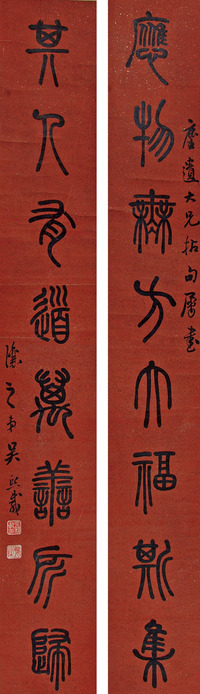 應物無方大福斯集
遺大兄拈句屬書
其人有道萬善所歸
之弟吳熙載